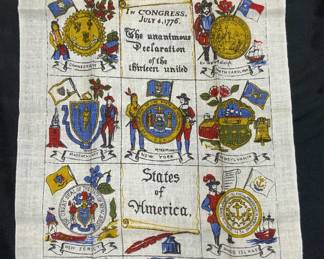 In CONGRESS,
JULY 4, 1776.
The unanimous
Declaration
of the
thirteen united
CONNECTICUT
NORTH CAROLINA
MASSACHUSETTS
NEW YORK
PENNSYLVANIA
States
of
America.
NEW JERSEY
RHODE ISLAND